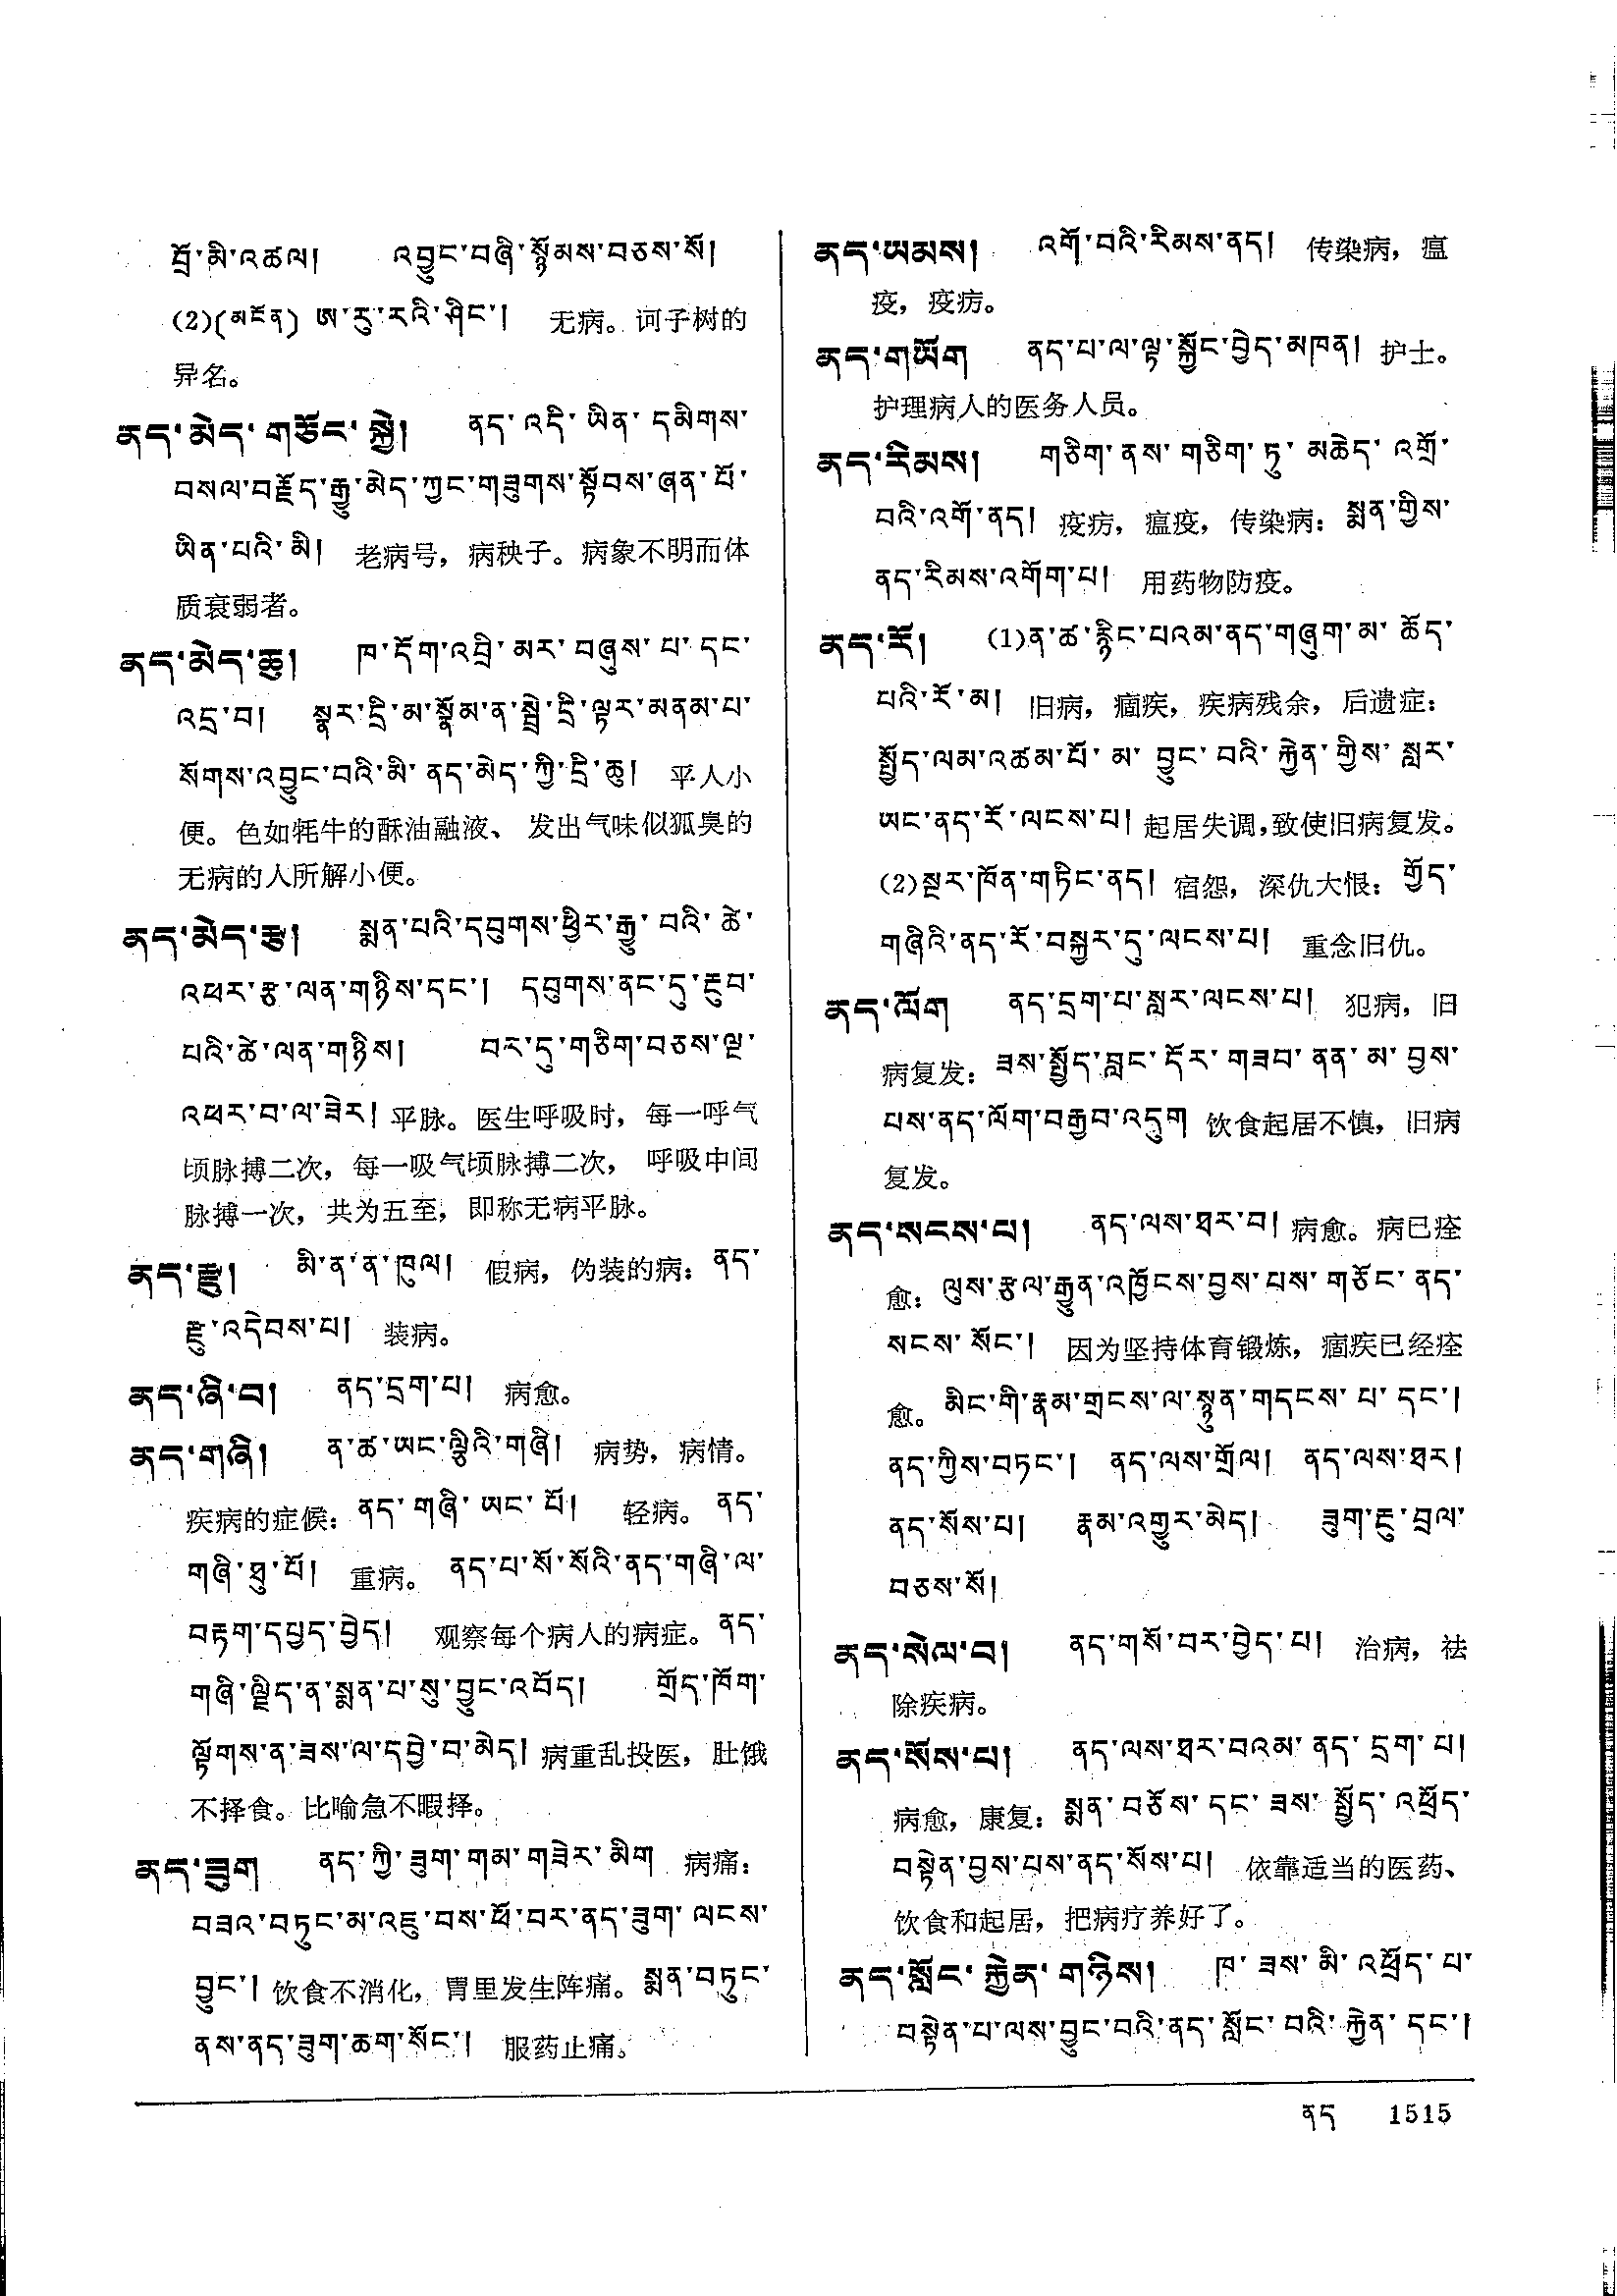 བྲོ་མི་འཚལ།  འབྱུང་བཞི་སྙོམས་བཅས་སོ།
(2)(མངོན) ཨ་རུ་རའི་ཤིང་།  无病。诃子树的
异名。
ནད་མེད་གཅོང་སྐྱེ།  ནད་འདི་ཡིན་དམིགས་
བསལ་བརྗོད་རྒྱུ་མེད་ཀྱང་གཟུགས་སྟོབས་ཞན་པོ་
ཡིན་པའི་མི།  老病号，病秧子。病象不明而体
质衰弱者。
ནད་མེད་ཆུ།  ཁ་དོག་འབྲི་མར་བཞུས་པ་དང་
འདྲ་བ།  སྣར་དྲི་མ་སྣོམ་ན་སྦྲེ་དྲི་ལྟར་མནམ་པ་
སོགས་འབྱུང་བའི་མི་ནད་མེད་ཀྱི་དྲི་ཆུ།  平人小
便。色如牦牛的酥油融液、发出气味似狐臭的
无病的人所解小便。
ནད་མེད་རྩ།  སྨན་པའི་དབུགས་ཕྱིར་རྒྱུ་བའི་ཚེ་
འཕར་རྩ་ལན་གཉིས་དང་།  དབུགས་ནང་དུ་རྔུབ་
པའི་ཚེ་ལན་གཉིས།  བར་དུ་གཅིག་བཅས་ལྔ་
འཕར་བ་ལ་ཟེར། 平脉。医生呼吸时，每一呼气
顷脉搏二次，每一吸气顷脉搏二次，呼吸中间
脉搏一次，共为五至，即称无病平脉。
ནད་རྫུ།  མི་ན་ན་ཁུལ།  假病，伪装的病：ནད་
རྫུ་འདེབས་པ།  装病。
ནད་ཞི་བ།  ནད་དྲག་པ།  病愈。
ནད་གཞི།  ན་ཚ་ཡང་ལྕིའི་གཞི།  病势，病情。
疾病的症候：ནད་གཞི་ཡང་པོ།  轻病。ནད་
གཞི་ཐུ་པོ།  重病。ནད་པ་སོ་སོའི་ནད་གཞི་ལ་
བརྟག་དཔྱད་བྱེད།  观察每个病人的病症。ནད་
གཞི་ལྗིད་ན་སྨན་པ་སུ་བྱུང་འབོད།  གྲོད་ཁོག་
ལྟོགས་ན་ཟས་ལ་དབྱེ་བ་མེད། 病重乱投医，肚饿
不择食。比喻急不暇择。
ནད་ཟུག  ནད་ཀྱི་ཟུག་གམ་གཟེར་མིག  病痛：
བཟའ་བཏུང་མ་འཇུ་བས་ཕོ་བར་ནད་ཟུག་ལངས་
བྱུང་། 饮食不消化，胃里发生阵痛。སྨན་བཏུང་
ནས་ནད་ཟུག་ཆག་སོང་།  服药止痛。
ནད་ཡམས།  འགོ་བའི་རིམས་ནད།  传染病，瘟
疫，疫疠。
ནད་གཡོག  ནད་པ་ལ་ལྟ་སྐྱོང་བྱེད་མཁན།  护士。
护理病人的医务人员。
ནད་རིམས།  གཅིག་ནས་གཅིག་ཏུ་མཆེད་འགྲོ་
བའི་འགོ་ནད།  疫疠，瘟疫，传染病：སྨན་གྱིས་
ནད་རིམས་འགོག་པ།  用药物防疫。
ནད་རོ།  (1)ན་ཚ་རྙིང་པའམ་ནད་གཞུག་མ་ཆོད་
པའི་རོ་མ།  旧病，痼疾，疾病残余，后遗症：
སྤྱོད་ལམ་འཚམ་པོ་མ་བྱུང་བའི་རྐྱེན་གྱིས་སླར་
ཡང་ནད་རོ་ལངས་པ། 起居失调，致使旧病复发。
(2)སྔར་ཁོན་གཏིང་ནད། 宿怨，深仇大恨：གྱོད་
གཞིའི་ནད་རོ་བསྐྱར་དུ་ལངས་པ།  重念旧仇。
ནད་ལོག  ནད་དྲག་པ་སླར་ལངས་པ།  犯病，旧
病复发：ཟས་སྤྱོད་བླང་དོར་གཟབ་ནན་མ་བྱས་
པས་ནད་ལོག་བརྒྱབ་འདུག 饮食起居不慎，旧病
复发。
ནད་སངས་པ།  ནད་ལས་ཐར་བ། 病愈。病已痊
愈：ལུས་རྩལ་རྒྱུན་འཁྱོངས་བྱས་པས་གཅོང་ནད་
སངས་སོང་།  因为坚持体育锻炼，痼疾已经痊
愈。མིང་གི་རྣམ་གྲངས་ལ་སྙུན་གདངས་པ་དང་།
ནད་ཀྱིས་བཏང་།  ནད་ལས་གྲོལ།  ནད་ལས་ཐར།
ནད་སོས་པ།  རྣམ་འགྱུར་མེད།  ཟུག་རྔུ་བྲལ་
བཅས་སོ།
ནད་སེལ་བ།  ནད་གསོ་བར་བྱེད་པ།  治病，祛
除疾病。
ནད་སོས་པ།  ནད་ལས་ཐར་བའམ་ནད་དྲག་པ།
病愈，康复：སྨན་བཅོས་དང་ཟས་སྤྱོད་འཕྲོད་
བསྟེན་བྱས་པས་ནད་སོས་པ།  依靠适当的医药、
饮食和起居，把病疗养好了。
ནད་སློང་རྐྱེན་གཉིས།  ཁ་ཟས་མི་འཕྲོད་པ་
བསྟེན་པ་ལས་བྱུང་བའི་ནད་སློང་བའི་རྐྱེན་དང་།
ནད  1515